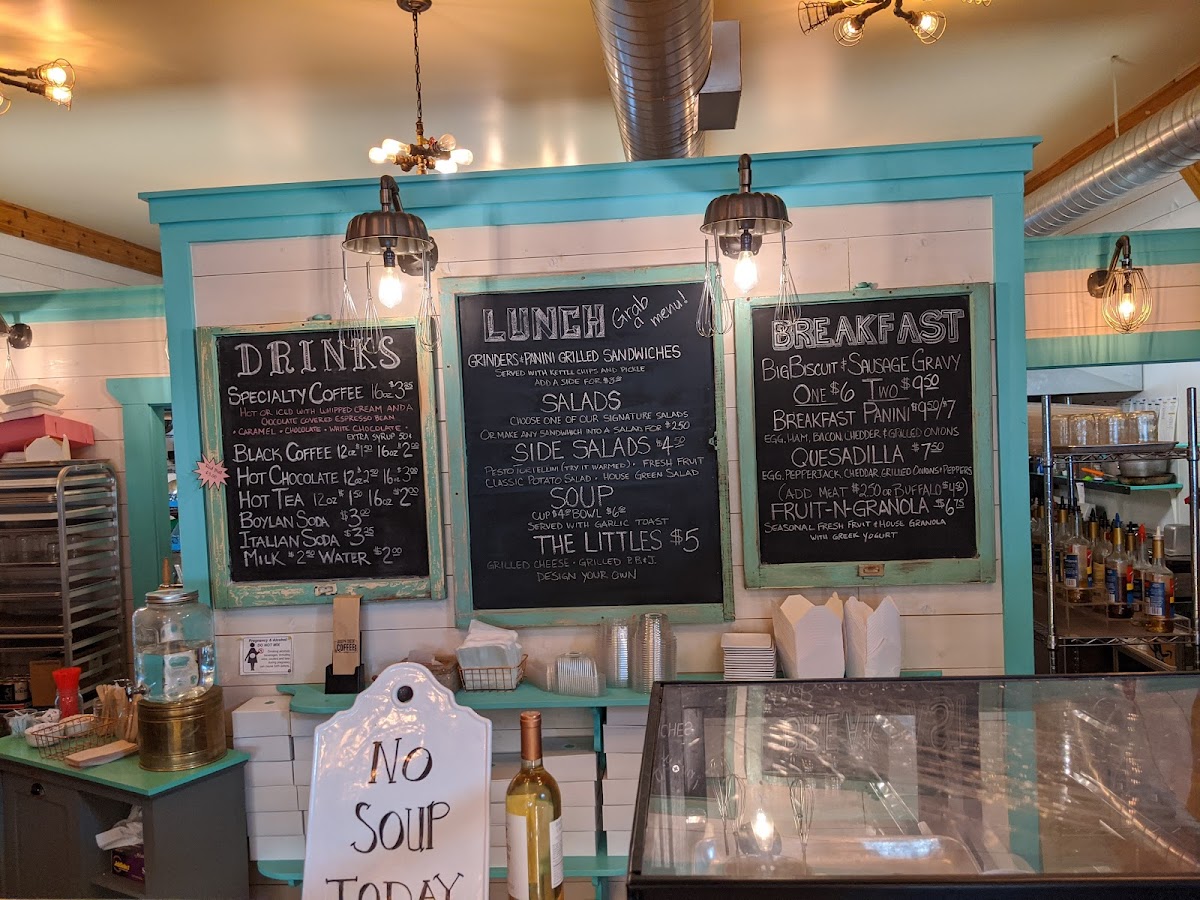 DRINKS
SPECIALTY COFFEE 16oz $3.85
HOT OR ICED WITH WHIPPED CREAM AND A
CHOCOLATE COVERED ESPRESSO BEAN
• CARAMEL • CHOCOLATE • WHITE CHOCOLATE •
EXTRA SYRUP 50¢
BLACK COFFEE 12oz 16oz
HOT CHOCOLATE 12oz 16oz
HOT TEA 12oz $1.50 16oz $2.00
BOYLAN SODA $3.00
ITALIAN SODA $3.25
MILK $2.50 WATER $2.00
LUNCH
Grab
a menu!
GRINDERS & PANINI GRILLED SANDWICHES
SERVED WITH KETTLE CHIPS AND PICKLE
ADD A SIDE FOR
SALADS
CHOOSE ONE OF OUR SIGNATURE SALADS
OR MAKE ANY SANDWHICH INTO A SALAD FOR $2.50
SIDE SALADS $4.50
PESTO TORTELLINI (TRY IT WARMED) • FRESH FRUIT
CLASSIC POTATO SALAD • HOUSE GREEN SALAD
SOUP
CUP BOWL
SERVED WITH GARLIC TOAST
THE LITTLES $5
GRILLED CHEESE • GRILLED P.B. & J.
DESIGN YOUR OWN
BREAKFAST
BIG BISCUIT & SAUSAGE GRAVY
ONE $6 TWO $9.50
BREAKFAST PANINI
EGG, HAM, BACON, CHEDDER & GRILLED ONIONS
QUESADILLA $7.50
EGG, PEPPERJACK, CHEDDAR, GRILLED ONIONS & PEPPERS
(ADD MEAT $2.50 OR BUFFALO $4.50)
FRUIT-N-GRANOLA $6.75
SEASONAL FRESH FRUIT & HOUSE GRANOLA
WITH GREEK YOGURT
Pregnancy & Alcohol
DO NOT MIX
COFFEE
NO
SOUP
TODAY